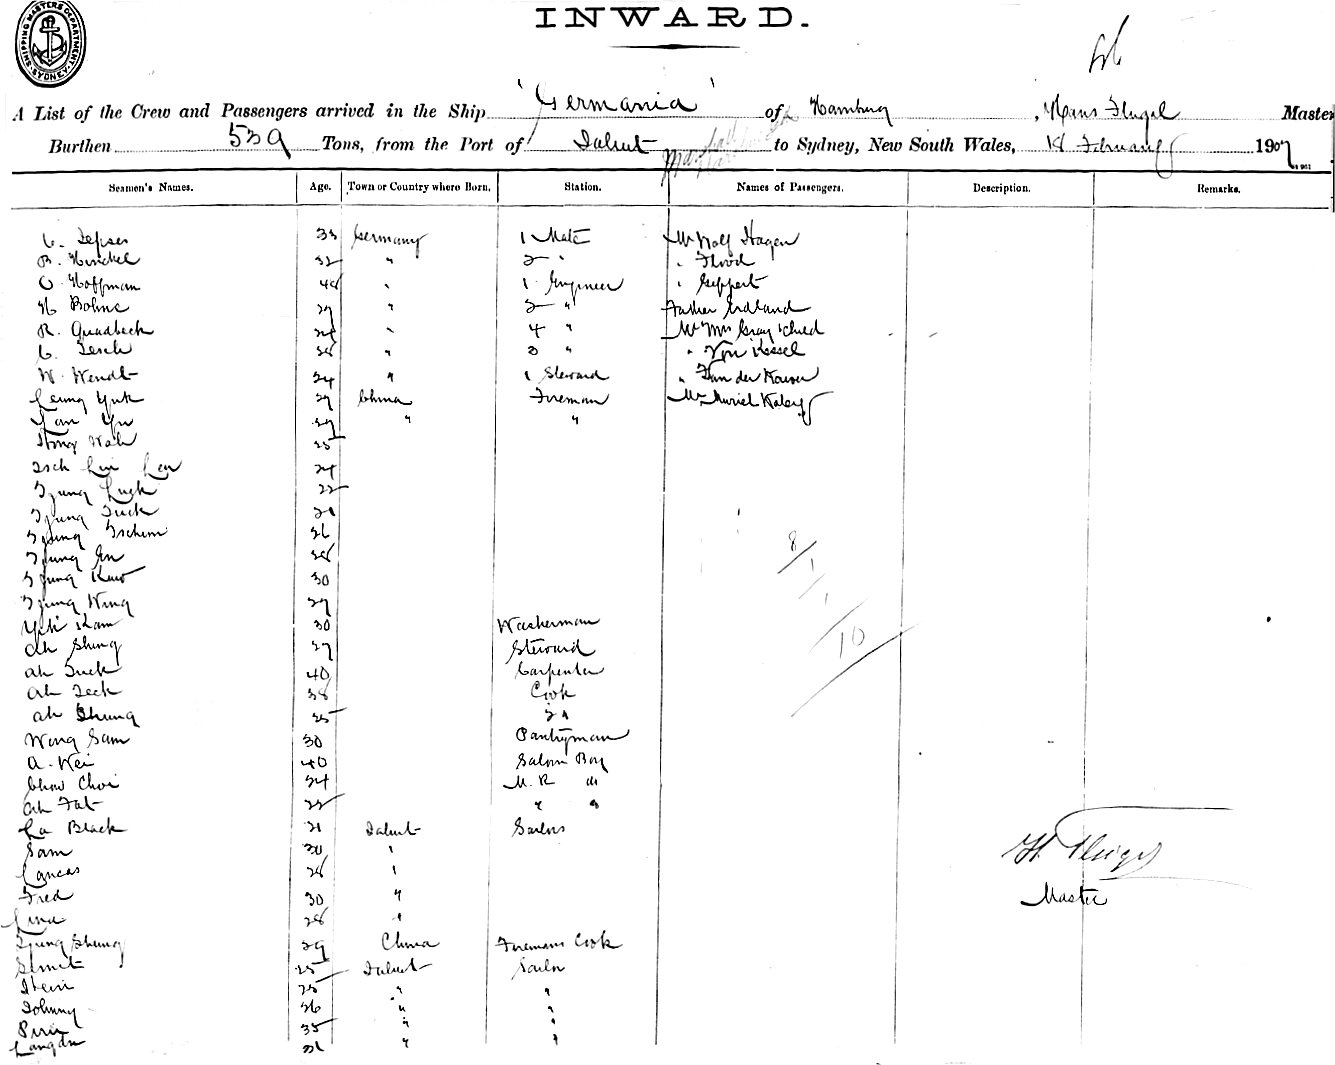 SHIPPING MASTERS DEPARTMENT. SYDNEY
INWARD.
A List of the Crew and Passengers arrived in the Ship 'Germania' of Hamburg, Hans Flugel Master
Burthen 539 Tons, from the Port of Jaluit to Sydney, New South Wales, 18 February 1907
Seamen's Names. Age. Town or Country where Born. Station. Names of Passengers. Description. Remarks.
33 Germany 1 Mate Mr Rolf Hagen
B. Hinckel 32 " 2 " " Flood
O. Hoffman 48 " 1 Engineer " Geppert
H Bohne 29 " 2 " Father Erdland
R. Quadbeck " 4 " Mr Mrs Gray child
C. Tesch 28 " 3 " " Von Kessel
W. Wendt 24 " 1 Steward " Van der
Leung Yuk 29 China Fireman Muriel
" "
Hong Wah 25
Tsch Lin 24
Tjung Luck 22
Tjung Tuck
Tjung Tschem 26
Tjung 28
Tjung 30
Tjung Wing 29
Kam 30 Washerman
Ah Shing 27 Steward
Ah Tuck 40 Carpenter
Ah Teck 38 Cook
Ah Shung 25 2 "
Wong Sam 30 Pantryman
A. Kei 40 Saloon Boy
Chow Choi 24 M. R "
Ah Fat 22 " "
Black 21 Jaluit Sailors
Sam 30 "
Lancas 28 "
Fred 30 "
Lina 28 "
Tjung Shung 29 China Firemans Cook
25 Jaluit Sailor
25 " "
Johnny 26 " "
35 " "
Langdu " "
8
1
1
10
H. Flugel
Master